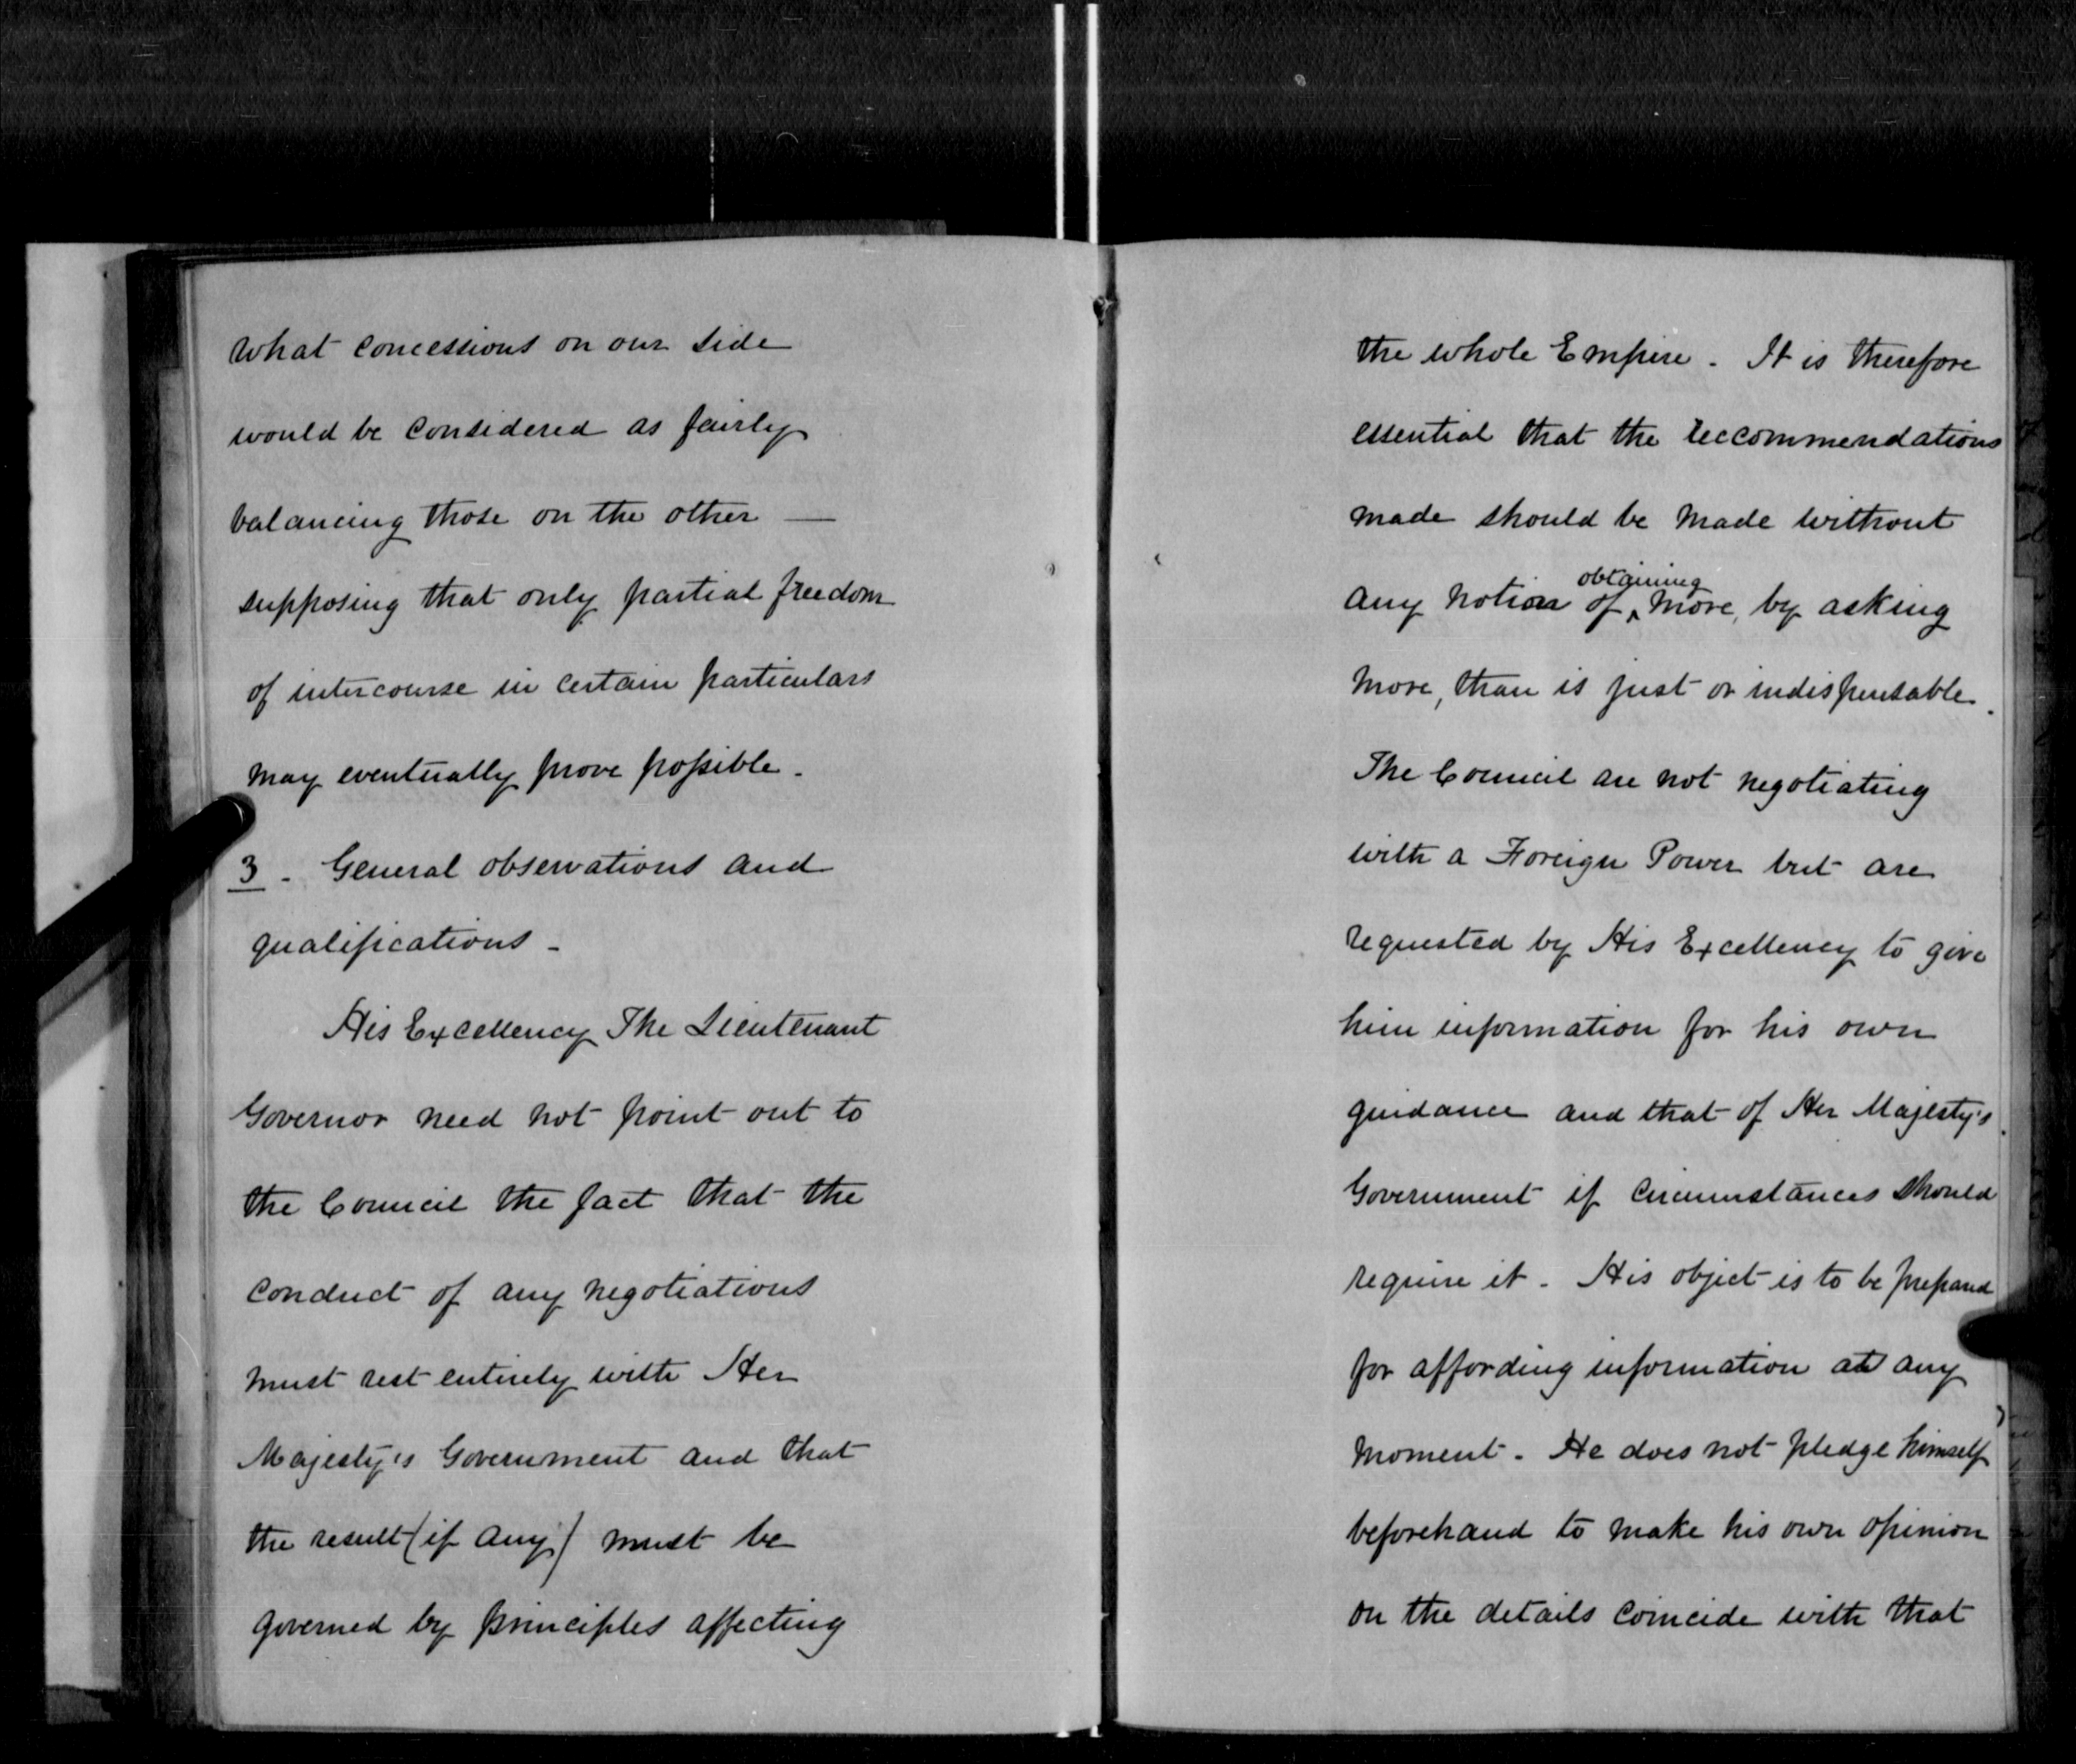 what concessions on our side
would be considered as fairly
balancing those on the other —
supposing that only partial freedom
of intercourse in certain particulars
may eventually prove possible.
3. General observations and
qualifications -
His Excellency The Lieutenant
Governor need not point out to
the Council the fact that the
conduct of any negotiations
must rest entirely with Her
Majesty's Government and that
the result (if any) must be
governed by principles affecting
the whole Empire. It is therefore
essential that the reccommendations
made should be made without
any notion of obtaining more, by asking
more, than is just or indispensable.
The Council are not negotiating
with a Foreign Power but are
requested by His Excellency to give
him information for his own
guidance and that of Her Majesty's
Government if circumstances should
require it. His object is to be prepared
for affording information at any
moment. He does not pledge himself
beforehand to make his own opinion
on the details coincide with that